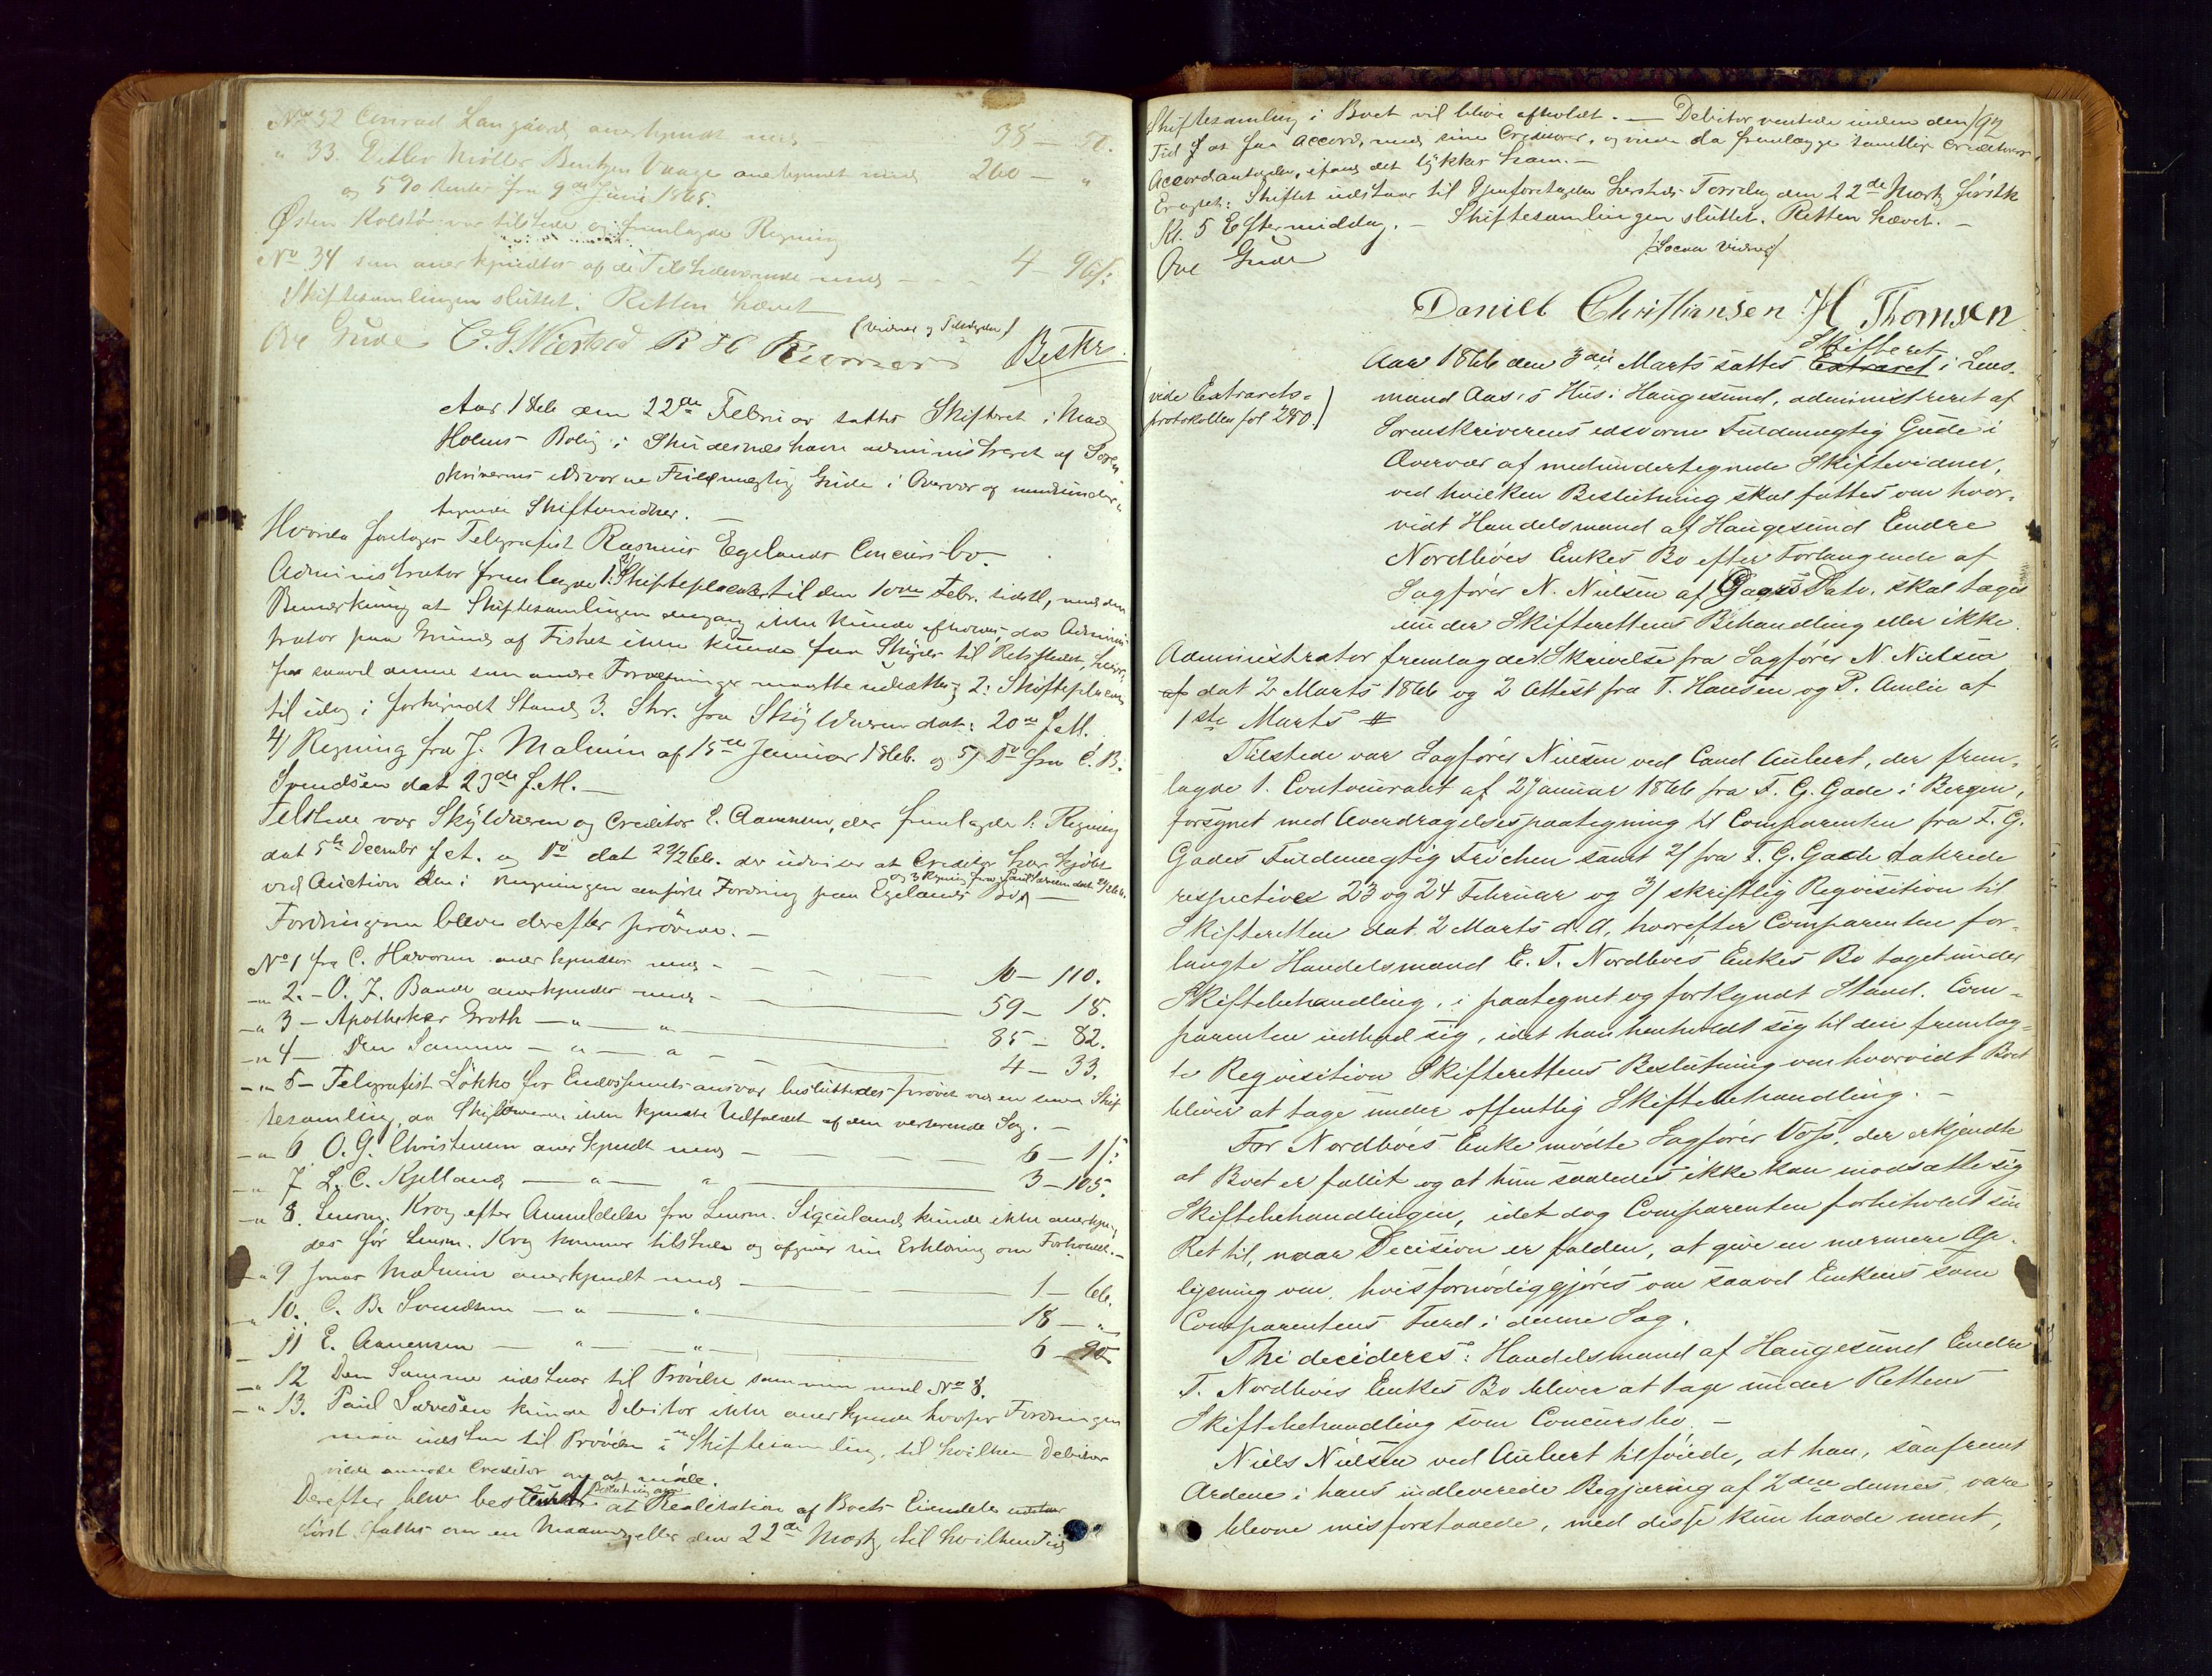 No 32 Conrad Langaard, anerkjendt med 38 –
" 33. Ditlev Møller Bentzen Vaage anerkjendt med 260 – "
og 5 % Renter fra 9de Juni 1865.
Østen Kolstø var tilstede og fremlagde Regning
No 34 som anerkjendtes af de Tilstedeværende med – – – 4 – 96 ß:
Skiftesamlingen sluttet. Retten hævet
(Vidner og Tilstedev.)
Ove Gude C. G. Wiersted R H
Beskr.
Aar 1866 den 22de Februar sattes Skifteret i Mad
Holms Bolig i Skudesneshavn administreret af Soren
skriverens edsvorne Fuldmægtig Gude i Overvær af medunder-
tegnede Skiftevidner. –
Hvorda foretages Telegrafist Rasmus Egelands Concursbo.
Administrator fremlagde 1: Skifteplacat til den 10de Febr. sidstl, med den
Bemærkning at Skiftesamlingen dengang ikke kunde afholdes, da Admini
strator paa Grund af Fisket ikke kunde faa Skyds til Retsstedet,
for saavel denne som andre Forretninger maatte udsættes, 2: Skifteplacat
til idag i forkyndt Stand, 3. Skr. fra Skyldneren dat: 20de f. M.
4) Regning fra J. Malmin af 15de Januar 1866. og 5) Do fra C. B.
Svendsen dat 23de f. M. –
Tilstede var Skyldneren og Creditor E. Aanensen, der fremlagde 1: Regning
dat 5te Decembr f. A. og Do dat 22/2 66. der udviser at Creditor har kjøbt
og 3 Regning fra Paul Sørensen dat 2/2 66.
ved Auction den i Regningen anførte Fordring paa Egelands Bo –
Fordringerne bleve derefter prøvede. –
No 1 fra C. Halvorsen anerkjendtes med – – – – 10 – 110.
–"– 2. – O. J. Baade anerkjendtes med – – 59 – 18.
–"– 3 – Apotheker Groth – " – " – 35 – 82.
–"– 4 – Den Samme – " – " – 4 – 33.
–"– 5 – Telegrafist Løkke for Endossements ansvar besluttedes prøvet ved en senere Skif
tesamling, da Skyldneren ikke kjendte Udfaldet af den verserende Sag. –
–"– 6 O. G. Christensen anerkjendt med – – – – 6 – 1 ß:
–"– 7 L. C. Kjelland, – " – " – 3 – 105.
–"– 8. Lensm. Krog efter Anmeldelse fra Lensm. Sigvaland, kunde ikke anerkjen-
des før Lensm. Krog kommer tilstede og afgiver sin Erklæring om Forholdet. –
–"– 9 Jonas Malmin anerkjendt med – – – 1 – 66.
–"– 10. C. B. Svendsen – " – " – 18 – "
–"– 11 E. Aanensen – " – " – 6 – 90
–"– 12 Den Samme udstaar til Prøvelse sammen med No 8.
–"– 13. Paul Sørensen kunde Debitor ikke anerkjende hvorfor Fordringen
maa udstaa til Prøvelse i en Skiftesamling, til hvilken Debitor
vilde anmode Creditor om at møde.
Derefter blev besluttet at Beslutning om Realisation af Boets Eiendele
først fattes om en Maaned, eller den 22de Marts, til hvilken Tid
192
Skiftesamling i Boet vil blive afholdt. – Debitor ventede inden den
Tid at faa Accord, med sine Creditorer, og vilde da fremlægge samtlige Creditorers
Accordantagelse, ifald det lykkes ham. –
Eragtet: Skiftet udstaar til Gjenforetagelse hersteds Torsdag den 22de Marts førstk
Kl. 5 Eftermiddag. – Skiftesamlingen sluttet. Retten hævet. –
(Locau Vidner)
Ove Gude
Daniel Christiansen H Thomsen
Skifteret
Aar 1866 den 3die Marts sattes Extraret i Lens-
(vide Extrarets-
protokollen fol 280.)
mand Aas's Hus i Haugesund, administreret af
Sorenskriverens edsvorne Fuldmægtig Gude i
Overvær af medundertegnede Skiftevidner,
ved hvilken Beslutning skal fattes om hvor-
vidt Handelsmand af Haugesund Endre
Nordbøes Enkes Bo efter Forlangende af
Sagfører N. Nielsen af Dato, skal tages
under Skifterettens Behandling eller ikke.
Administrator fremlagde 1. Skrivelse fra Sagfører N. Nielsen
af dat 2 Marts 1866 og 2 Attest fra T. Hansen og P. Amlie af
1ste Marts #
Tilstede var Sagfører Nielsen ved Cand Aubert, der frem-
lagde 1. Contocurant af 2 Januar 1866 fra F. G. Gade i Bergen,
forsynet med Overdragelsespaategning til Comparenten fra F. G.
Gades Fuldmægtig Frøchen samt 2/ fra F. G. Gade daterede
respective 23 og 24 Februar og 3/ skriftlig Reqvisition til
Skifteretten dat. 2 Marts d. A, hvorefter Comparenten for-
langte Handelsmand E. T. Nordbøes Enkes Bo taget under
Skiftebehandling, i paategnet og forkyndt Stand. Com-
parenten udbad sig, idet han henholdt sig til den fremlag-
te Reqvisition Skifterettens Beslutning om hvorvidt Boet
bliver at tage under offentlig Skiftebehandling. –
For Nordbøes Enke mødte Sagfører Voss, der erkjendte
at Boet er fallit og at hun saaledes ikke kan modsætte sig
Skiftebehandlingen, idet dog Comparenten forbeholdt sin
Ret til, naar Decision er falden, at give en nærmere Op-
lysning om, hvis fornødiggjøres om saavel Enkens som
Comparentens Færd i denne Sag.
Thi decideres: Handelsmand af Haugesund Endre
T. Nordbøes Enkes Bo bliver at tage under Rettens
Skiftebehandling som Concursbo. –
Niels Nielsen ved Aubert tilføiede, at han, saafremt
Ordene i hans indleverede Begjæring af 2den dennes, vare
blevne misforstaaede, med disse kun havde ment,